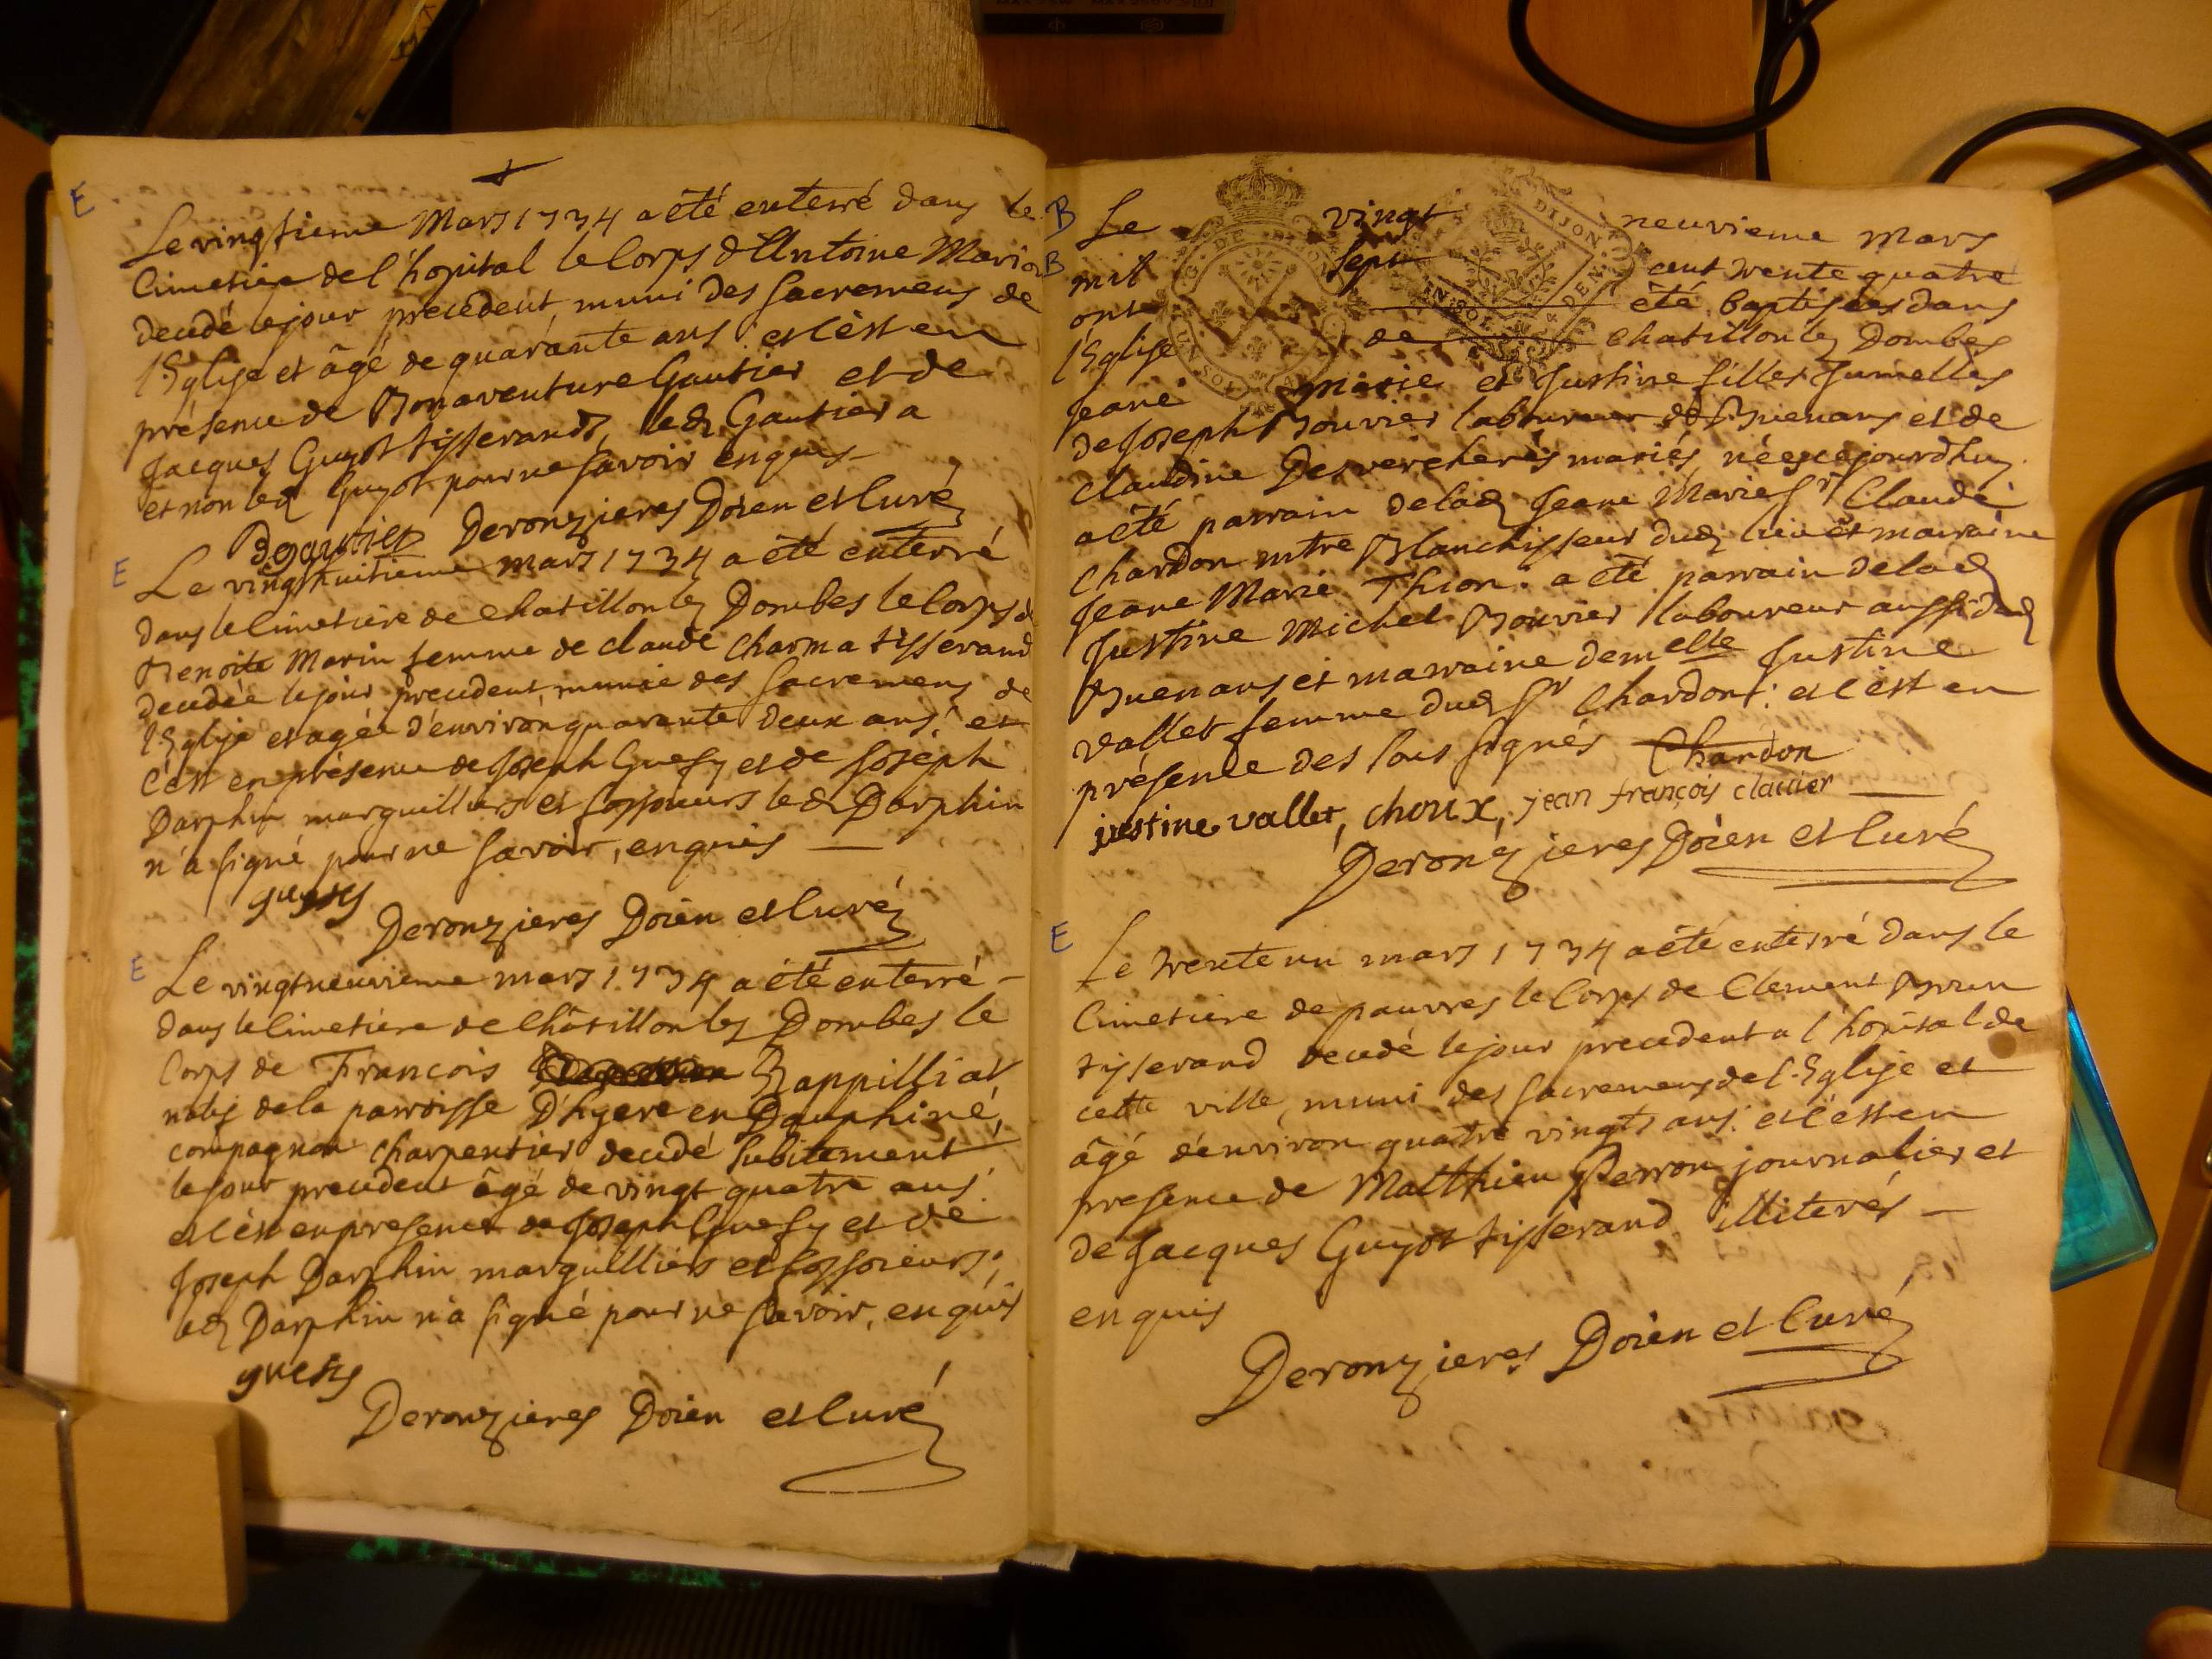 E
Le vingtieme Mars 1734 a été enterré dans le
Cimetiere de l'hopital le Corps d'Antoine Marion
decedé le jour precedent, muni des sacremens de
l'Eglise et âgé de quarante ans : et c'est en
présence de Bonaventure Gautier et de
Jacques Guyot tisserands, led Gautier a
et non led Guyot pour ne savoir enquis
Bgautier Deronzieres Doien et Curé
E
Le vingthuitieme mars 1734 a été enterré
dans le Cimetiere de Chatillon les Dombes le Corps de
Benoite Marin femme de claude Charma tisserand
decedée le jour precedent munie des sacremens de
l'Eglise et agée d'environ quarante deux ans : et
c'est en présence de Joseph Guesy et de Joseph
Darphin marguilliers et fossoieurs led Darphin
n'a signé pour ne savoir, enquis
guesy
Deronzieres Doien et Curé
E
Le vingtneuvieme mars 1734 a été enterré
dans le Cimetiere de Châtillon les Dombes le
Corps de François Rappilliat
natif de la parroisse D'hyere en Dauphiné,
compagnon charpentier decedé subitement
le jour precedent âgé de vingt quatre ans :
et c'est en presence de Joseph Guesy et de
Joseph Darphin marguilliers et fossoieurs ;
led Darphin n'a signé pour ne savoir, enquis
guesy
Deronzieres Doien et Curé
B
B
G. DE DIJON
DIJON
Le vingt neuvieme mars
mil sept cent trente quatre
ont été baptisées dans
l'Eglise de chatillon les Dombes
Jeane Marie et Justine filles Jumelles
de Joseph Bouvier laboureur de Buenans et de
Claudine Desvercheres mariés, nées cejourdhuy.
a été parrain de lad Jeane Marie Sr Claude
Chardon mtre Blanchisseur dud lieu et marraine
Jeane Marie Thion. a été parrain de lad
Justine Michel Bouvier laboureur aussi dud
Buenans et marraine demelle Justine
vallet femme dud Sr Chardont : et c'est en
présence des sous signés Chardon
justine vallet, choux, jean françois clavier
Deronzieres Doien et Curé
E
Le trente un mars 1734 a été enterré dans le
Cimetiere de pauvres le Corps de Clement Brun
tisserand decedé le jour precedent a l'hopital de
cette ville, muni des sacremens de l'Eglise et
âgé d'environ quatre vingts ans : et c'est en
presence de Matthieu Perron journalier et
de Jacques Guyot tisserand illiterés
enquis
Deronzieres Doien et Curé